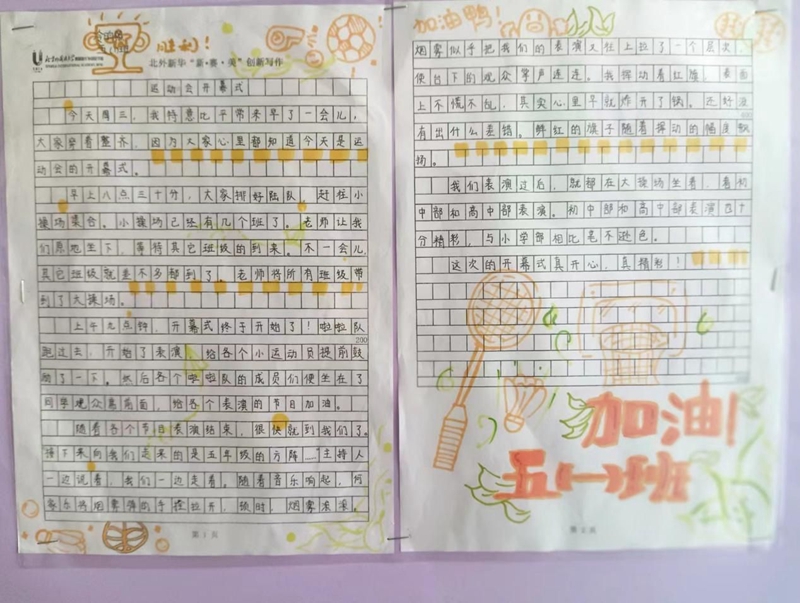 胜利！
北外新华“新·赛·英”创新写作
运动会开幕式
今天周三，我特意比平常来早了一会儿，
大家穿着整齐，因为大家心里都知道今天是运
动会的开幕式。
早上八点三十分，大家排好队，赶往小
操场集合。小操场已经有几个班了。老师让我
们原地坐下，等待其它班级的到来。不一会儿，
其它班级就差不多都到了。老师将所有班级带
到了大操场。
上午九点钟，开幕式终于开始了！啦啦队
跑过去，开始了表演，给各个小运动员提前鼓
励了一下。然后各个啦啦队的成员们便坐在了
同学观众席前面，给各个表演的节目加油。
200
随着各个节目表演结束，很快就到我们了。
“接下来向我们走来的是五年级的方阵。”主持人
一边说着，我们一边走着。随着音乐响起，何
家乐将烟雾弹的手拉开，顿时，烟雾滚滚。
第 1 页
加油鸭！
烟雾似乎把我们的表演又往上拉了一个层次，
使台下的观众掌声连连。我挥动着红旗，表面
上不慌不忙，其实心里早就炸开了锅。还好没
有出什么差错。鲜红的旗子随着挥动的幅度飘
扬。
我们表演过后，就都在大操场坐着，看初
中部和高中部表演。初中部和高中部表演四十
分精彩，与小学部相比毫不逊色。
这次的开幕式真开心，真精彩！
加油！
五（一）班
第 2 页